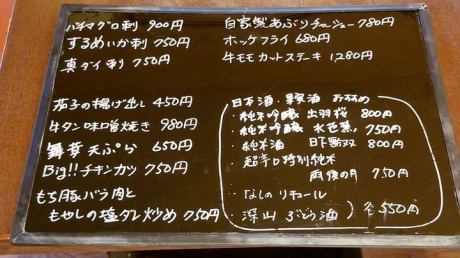 バチマグロ刺 900円
するめいか刺 750円
真ダイ刺 750円
茄子の揚げ出し 450円
牛タン味噌焼き 980円
舞茸天ぷら 650円
Big!!チキンカツ 750円
もち豚バラ肉と
もやしの塩ダレ炒め 750円
自家製あぶりチャーシュー 780円
ホッケフライ 680円
牛モモカットステーキ 1280円
日本酒・果実酒 おすすめ
・純米吟醸 出羽桜 800円
・純米吟醸 水芭蕉 750円
・純米酒 日下無双 800円
・超辛口特別純米
雨後の月 750円
・なしのリキュール
・深山ぶどう酒 各550円